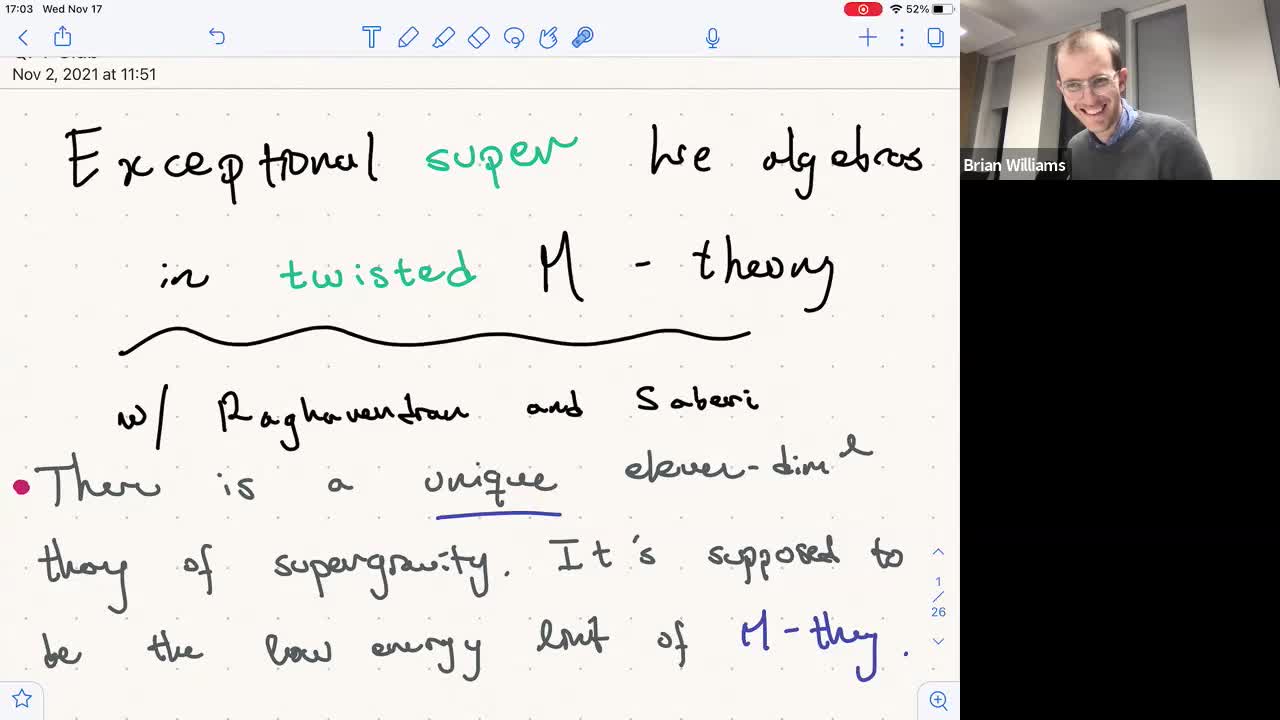 17:03 Wed Nov 17
52%
Nov 2, 2021 at 11:51
Exceptional super Lie algebras
in twisted M - theory
w/ Raghavendran and Saberi
• There is a unique eleven-dim'l
thory of supergravity. It's supposed to
be the low energy limit of M-thy.
1
/
26
Brian Williams